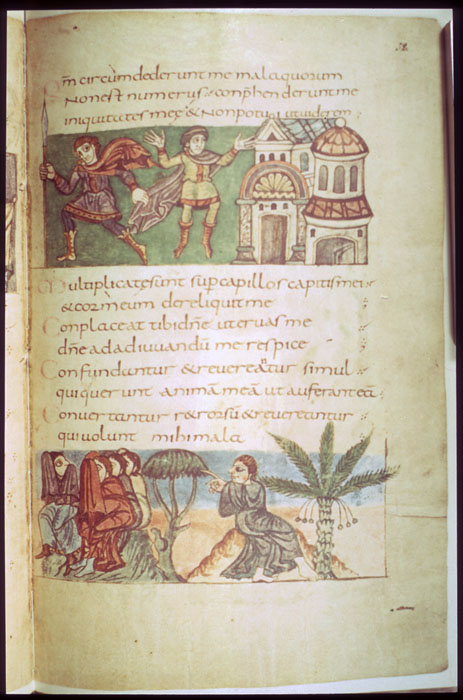 Qm circumdederunt me mala quorum
Non est numerus conphenderunt me
iniquitates meę & non potui ut uiderem
Multiplicatę sunt sup capillos capitis mei
& cor meum dereliquit me
Conplaceat tibi dñe ut eruas me
dñe ad adiuuandū me respice
Confundantur & reuereantur simul
qui querunt animā meā ut auferant eā
Conuertantur r&rorsū & reuereantur
qui uolunt mihi mala